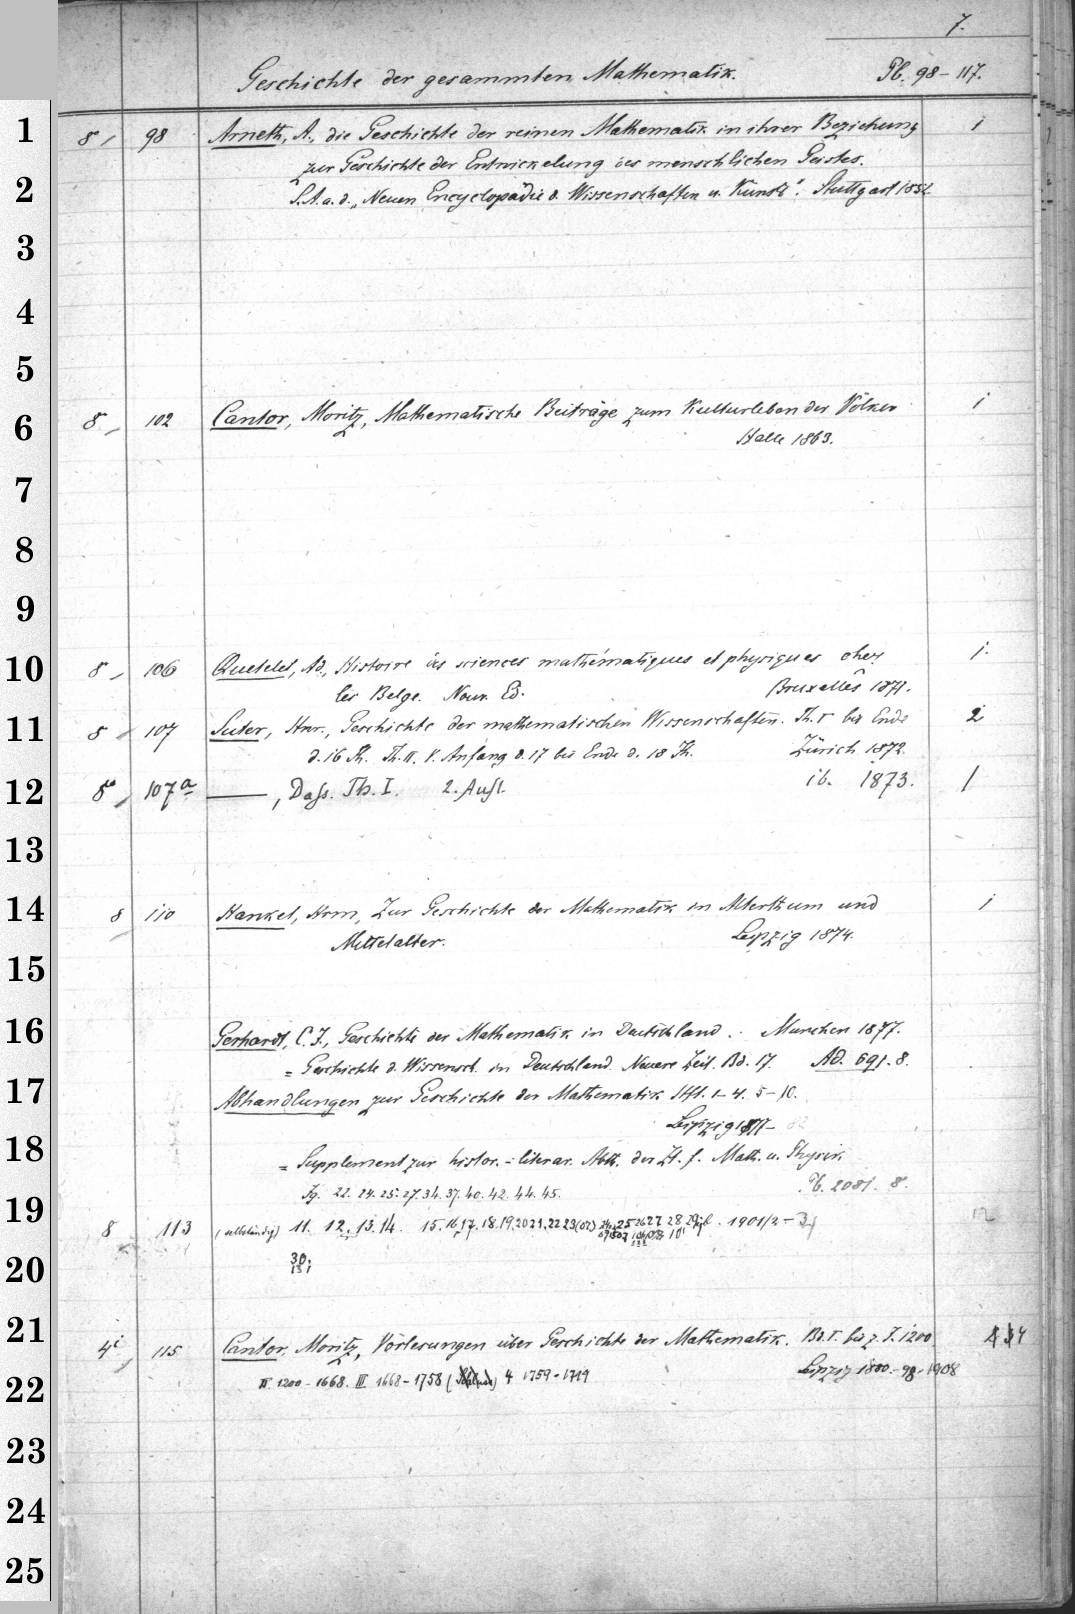 7.
Geschichte der gesammten Mathematik. Pb. 98-117.
1 8, 98 Arneth, A., die Geschichte der reinen Mathematik in ihrer Beziehung 1
zur Geschichte der Entwickelung des menschlichen Geistes.
2 S.A. a. d. „Neuen Encyclopädie d. Wissenschaften u. Künste". Stuttgart 1852
3
4
5
6 8, 102 Cantor, Moritz, Mathematische Beiträge zum Kulturleben der Völker 1
Halle 1863.
7
8
9
10 8, 106 Quetelet, Ad., Histoire des sciences mathématiques et physiques chez 1.
les Belge. Nouv. Ed. Bruxelles 1871.
11 8, 107 Suter, Hnr., Geschichte der mathematischen Wissenschaften. Th. I bis Ende 2
d. 16 Jh. Th. II. v. Anfang d. 17 bis Ende d. 18 Jh. Zürich 1872.
12 8, 107a ——, Dass. Th. I. 2. Aufl. ib. 1873. 1
13
14 8 110 Hankel, Hrm, Zur Geschichte der Mathematik in Alterthum und 1
Mittelalter. Leipzig 1874.
15
16 Gerhardt, C. J., Geschichte der Mathematik in Deutschland. München 1877.
= Geschichte d. Wissensch. in Deutschland. Neuere Zeit. Bd. 17. Ad. 691. 8.
17 Abhandlungen zur Geschichte der Mathematik Hft. 1-4. 5-10.
Leipzig 1877-
18 = Supplement zur histor.-literar. Abth. der Zt. f. Math. u. Physik
Jg. 22. 24. 25. 27. 34. 37. 40. 42. 44. 45. Pb. 2081. 8.
19 8 113 (selbständig) 11. 12. 13. 14. 15. 16. 17. 18. 19. 20 21. 22 23 (02) 25 26 27 28 1901/2-
20 30.
21 4i, 115 Cantor, Moritz, Vorlesungen über Geschichte der Mathematik. Bd. I. bis z. J. 1200 4
22 II. 1200-1668. III 1668-1758 4 1759-1799 Leipzig 1880.-98-1908
23
24
25